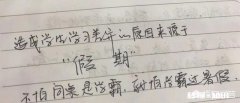 造成学生学习差的原因来源于
"假期"
不怕同桌是学霸,就怕学霸过暑假